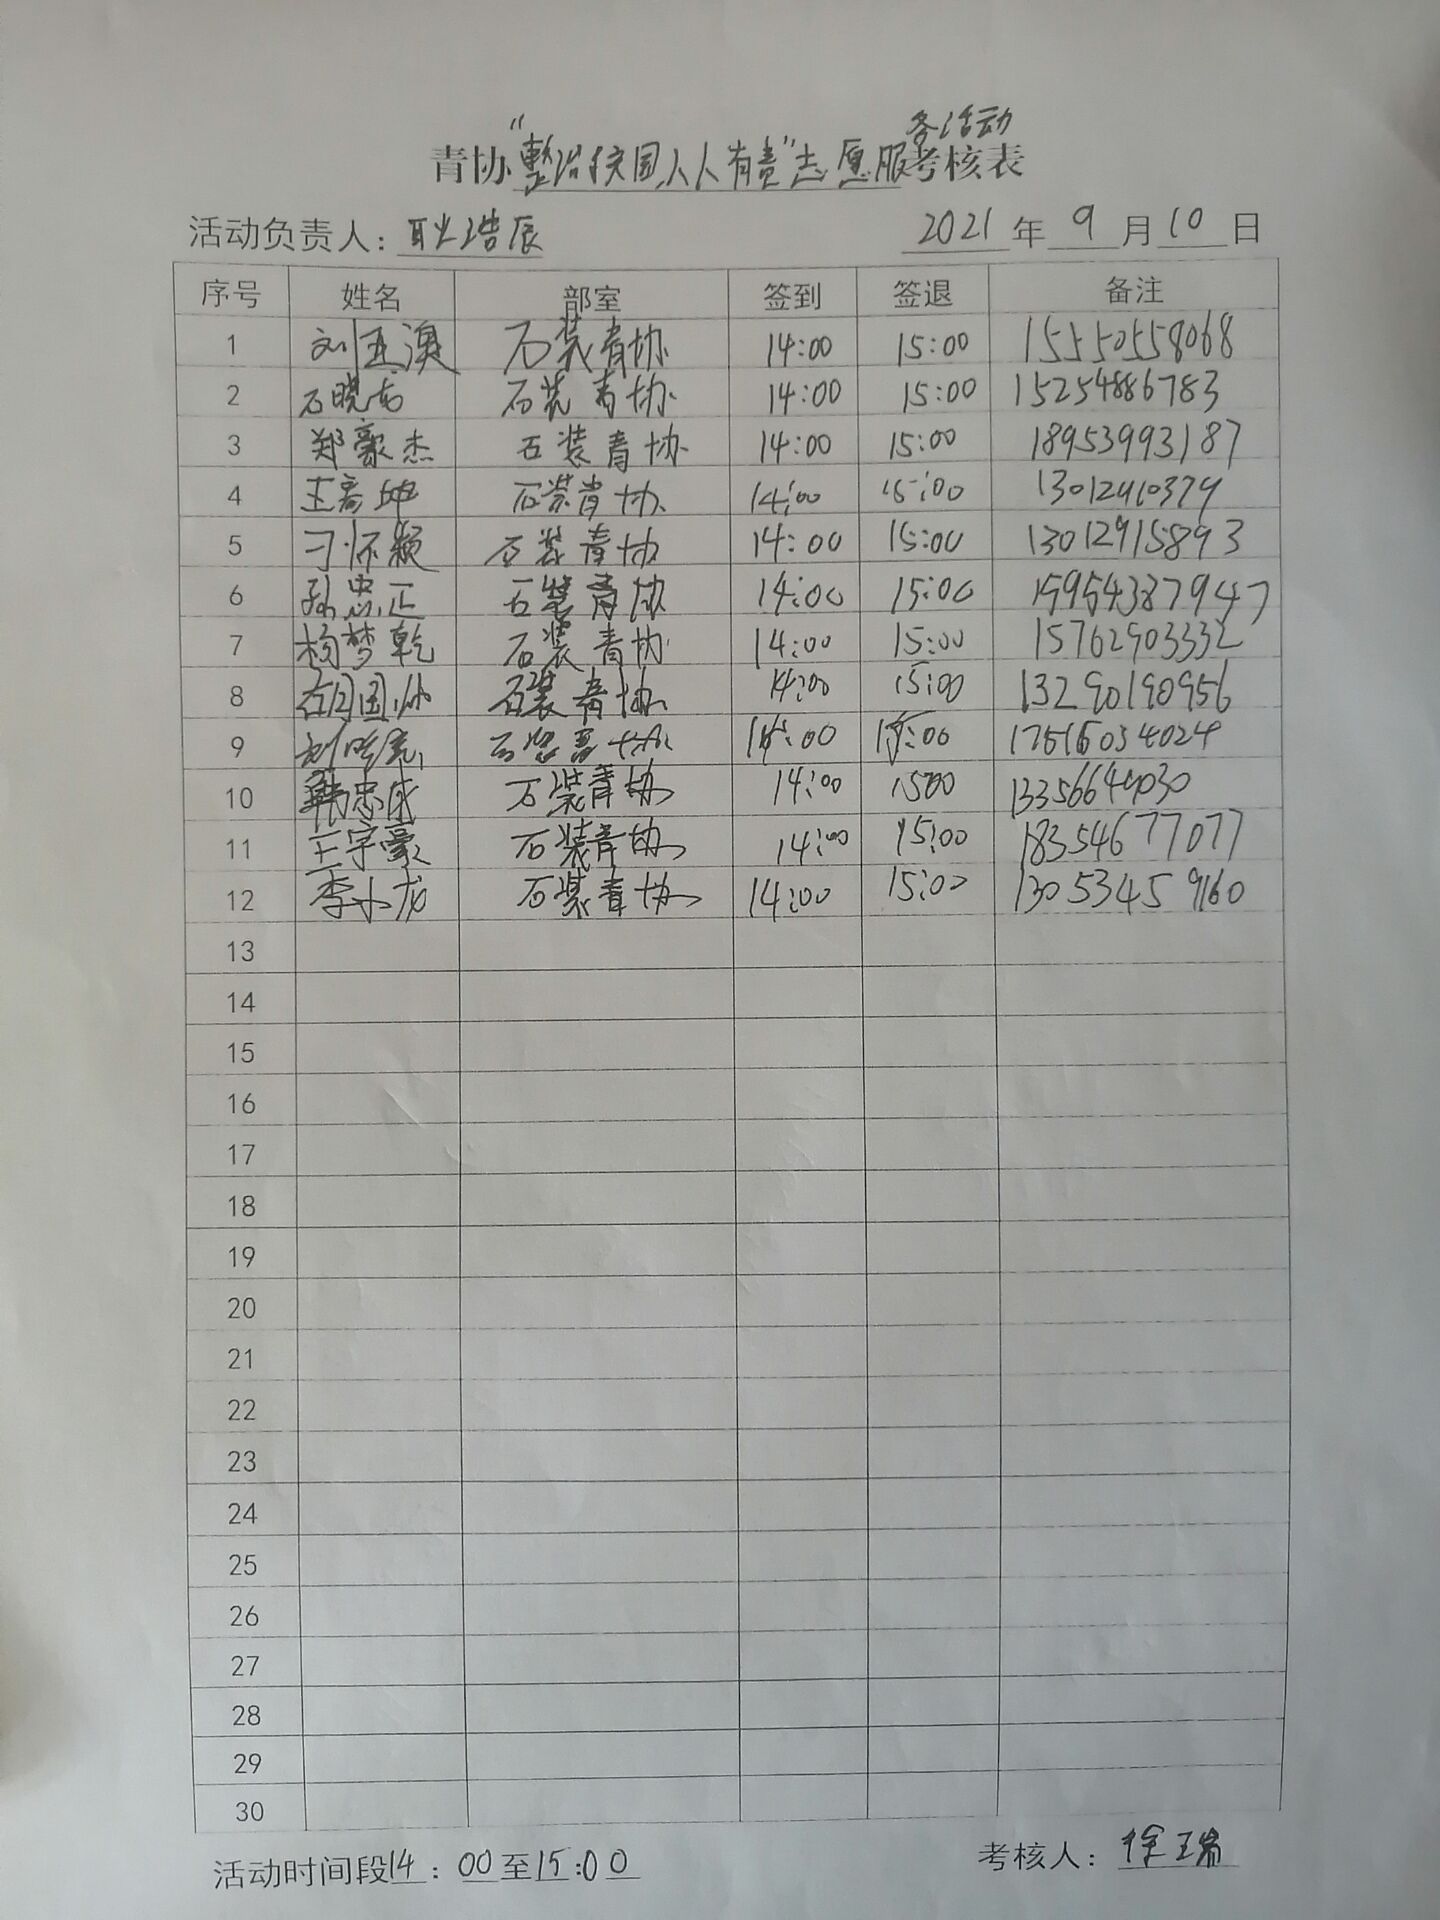 务活动
青协“整治校园,人人有责”志愿服考核表
活动负责人：耿浩辰 2021年9月10日
序号 姓名 部室 签到 签退 备注
1 刘亚澳 石装青协 14:00 15:00 15550558068
2 石晓东 石装青协 14:00 15:00 15254886783
3 郑豪杰 石装青协 14:00 15:00 18953993187
4 石装青协 14:00 15:00
5 刁怀颖 石装青协 14:00 15:00 13012915893
6 孙忠正 石装青协 14:00 15:00 15954387947
7 杨梦乾 石装青协 14:00 15:00 15762903332
8 石装青协 14:00 15:00 13290190956
9 石装青协 14:00 15:00
10 韩忠成 石装青协 14:00 1500
11 王宇豪 石装青协 14:00 15:00 18354677077
12 李小龙 石装青协 14:00 15:00 13053459160
13
14
15
16
17
18
19
20
21
22
23
24
25
26
27
28
29
30
活动时间段14：00至15:00 考核人：徐瑞